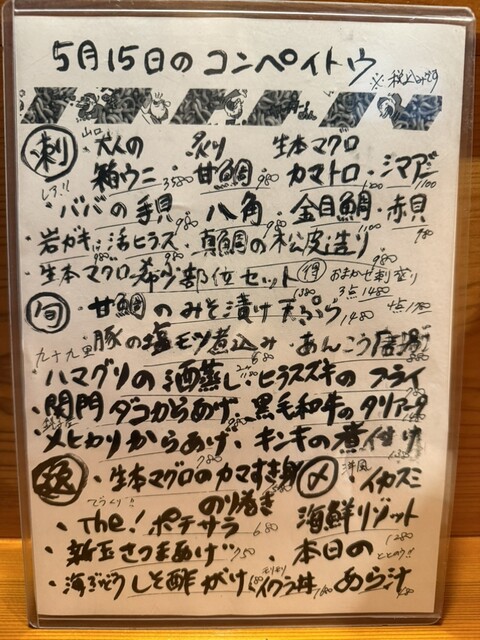 5月15日のコンペイトウ
※税込みです
刺
山口 大人の箱ウニ 3580 ・炙り甘鯛 980 ・生本マグロカマトロ ・シマアジ 1100
レア!! ・ババの手貝 980 八角 980 ・金目鯛 1100 ・赤貝 980
・岩ガキ 980 ・活ヒラス 980 ・真鯛の松皮造り 980
・生本マグロ希少部位セット 1580 得 おまかせ刺盛り 3点1480
旬 ・甘鯛のみそ漬け天ぷら 1480
九十九里 ・豚の塩モツ煮込み 680 ・あんこう唐揚 880
・ハマグリの酒蒸し ・ヒラスズキのフライ
・関門ダコからあげ ・黒毛和牛のタリアータ
・メヒカリからあげ 780 ・キンキの煮付け
・生本マグロのカマすき身のり巻き
〆 洋風 ・イカスミ海鮮リゾット 1280
・The!ポテサラ 680
・新玉さつまあげ 750 ・本日のあら汁
・海ぶどうしそ酢がけ ・イクラ丼